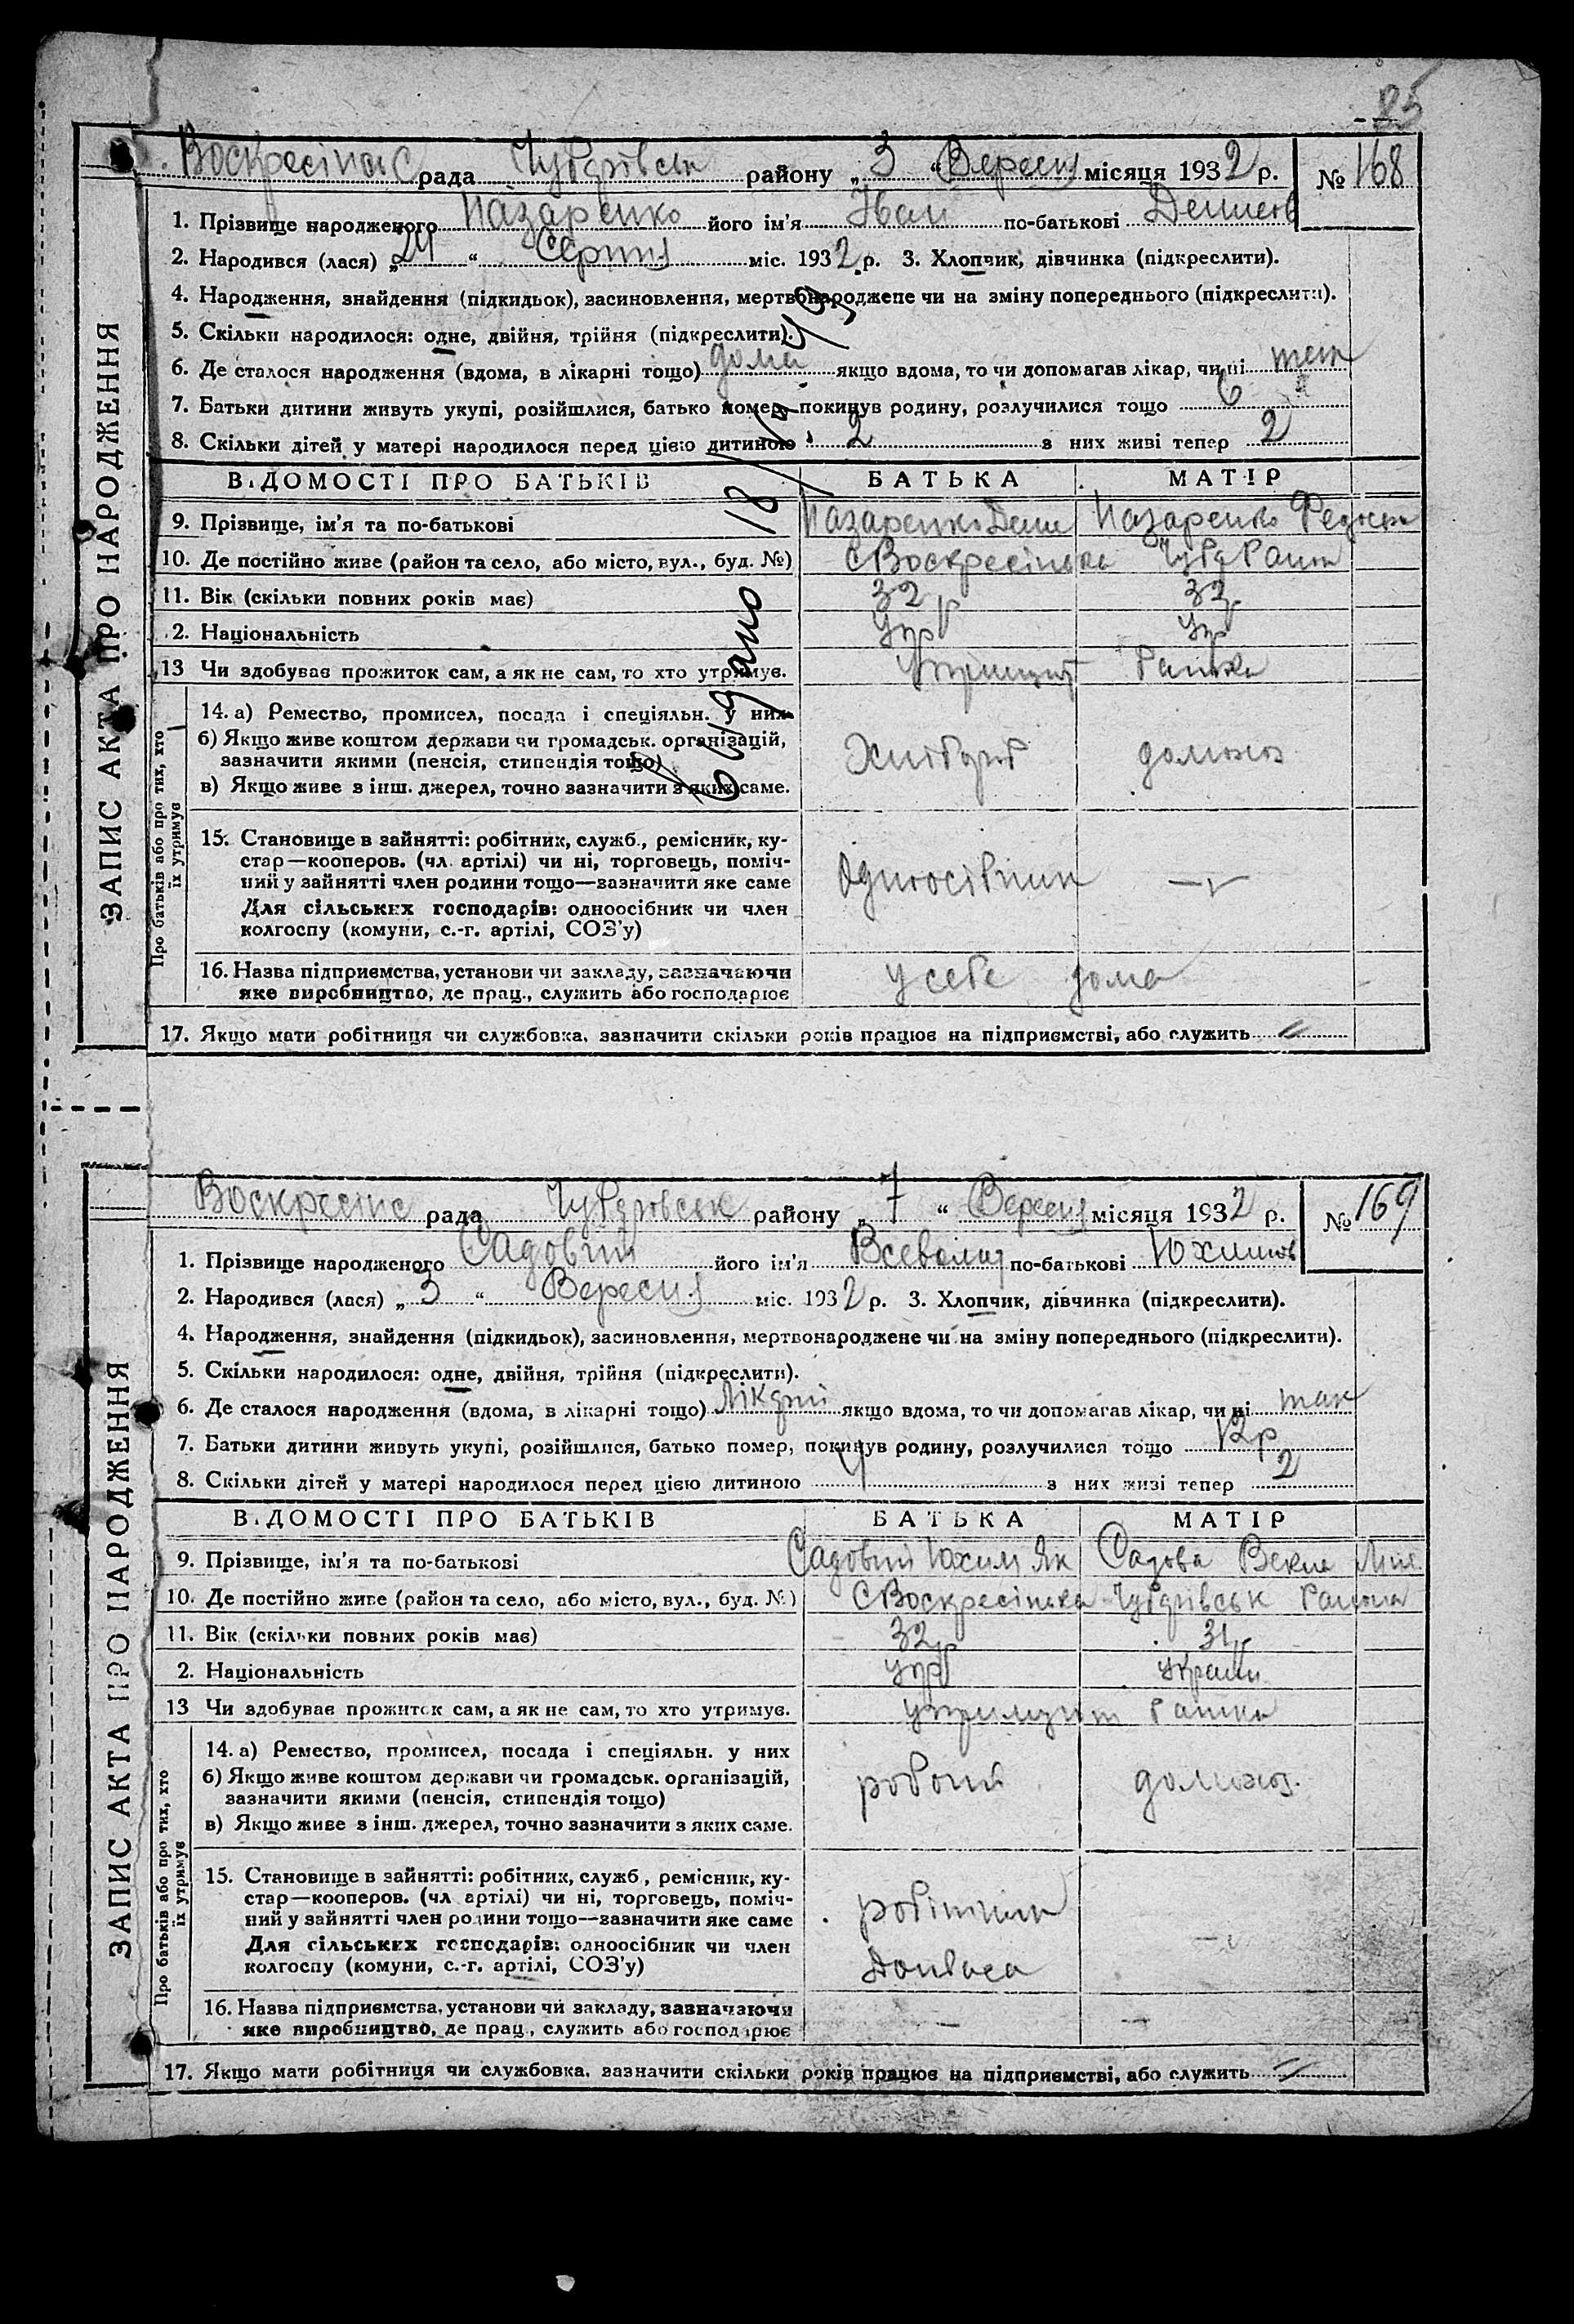 85
Воскресінс рада Чубарівськ району „ 3 “ Вересня місяця 1932 р. № 168
1. Прізвище народженого Назаренко його ім'я Іван по-батькові Денисов
2. Народився (лася) „ 24 “ Серпня міс. 1932 р. 3. Хлопчик, дівчинка (підкреслити).
4. Народження, знайдення (підкидьок), засиновлення, мертвонароджене чи на зміну попереднього (підкреслити).
5. Скільки народилося: одне, двійня, трійня (підкреслити).
6. Де сталося народження (вдома, в лікарні тощо) дома якщо вдома, то чи допомагав лікар, чи ні так
7. Батьки дитини живуть укупі, розійшлися, батько помер, покинув родину, розлучилися тощо 6
8. Скільки дітей у матері народилося перед цією дитиною 2 з них живі тепер 2
ВІДОМОСТІ ПРО БАТЬКІВ БАТЬКА МАТІР
9. Прізвище, ім'я та по-батькові Назаренко Дени Назаренко Федосья
10. Де постійно живе (район та село, або місто, вул., буд. №) С Воскресінька Чуб Района
11. Вік (скільки повних років має) 32 р 32 р
2. Національність Укр Укр
13 Чи здобуває прожиток сам, а як не сам, то хто утримує.
14. а) Ремество, промисел, посада і спеціяльн. у них
б) Якщо живе коштом держави чи громадськ. організацій,
зазначити якими (пенсія, стипендія тощо)
в) Якщо живе з інш. джерел, точно зазначити з яких саме.
Хлібороб домохоз
15. Становище в зайнятті: робітник, служб., ремісник, ку-
стар—кооперов. (чл. артілі) чи ні, торговець, поміч-
ний у зайнятті член родини тощо—зазначити яке саме
Для сільських господарів: одноосібник чи член
колгоспу (комуни, с.-г. артілі, СОЗ'у)
Одноосібник
16. Назва підприємства, установи чи закладу, зазначаючи
яке виробництво, де прац., служить або господарює
у себе дома
17. Якщо мати робітниця чи службовка, зазначити скільки років працює на підприємстві, або служить
ЗАПИС АКТА ПРО НАРОДЖЕННЯ
Про батьків або про тих, хто
їх утримує
Воскресінс рада Чубарівськ району „ 7 “ Вересня місяця 1932 р. № 169
1. Прізвище народженого Садовий його ім'я Всеволод по-батькові Юхимов
2. Народився (лася) „ 3 “ Вересня міс. 1932 р. 3. Хлопчик, дівчинка (підкреслити).
4. Народження, знайдення (підкидьок), засиновлення, мертвонароджене чи на зміну попереднього (підкреслити).
5. Скільки народилося: одне, двійня, трійня (підкреслити).
6. Де сталося народження (вдома, в лікарні тощо) якщо вдома, то чи допомагав лікар, чи ні так
7. Батьки дитини живуть укупі, розійшлися, батько помер, покинув родину, розлучилися тощо 12р
8. Скільки дітей у матері народилося перед цією дитиною 4 з них живі тепер 2
ВІДОМОСТІ ПРО БАТЬКІВ БАТЬКА МАТІР
9. Прізвище, ім'я та по-батькові Садовий Юхим Як Садова Векла
10. Де постійно живе (район та село, або місто, вул., буд. №) С Воскресінька Чубарівськ Района
11. Вік (скільки повних років має) 32 р 31 р
2. Національність Укр Украин
13 Чи здобуває прожиток сам, а як не сам, то хто утримує.
14. а) Ремество, промисел, посада і спеціяльн. у них
б) Якщо живе коштом держави чи громадськ. організацій,
зазначити якими (пенсія, стипендія тощо)
в) Якщо живе з інш. джерел, точно зазначити з яких саме.
робочий домохоз.
15. Становище в зайнятті: робітник, служб., ремісник, ку-
стар—кооперов. (чл артілі) чи ні, торговець, поміч-
ний у зайнятті член родини тощо—зазначити яке саме
Для сільських господарів: одноосібник чи член
колгоспу (комуни, с.-г. артілі, СОЗ'у)
робітник
Донбаса
16. Назва підприємства, установи чи закладу, зазначаючи
яке виробництво, де прац., служить або господарює
17. Якщо мати робітниця чи службовка, зазначити скільки років працює на підприємстві, або служить
ЗАПИС АКТА ПРО НАРОДЖЕННЯ
Про батьків або про тих, хто
їх утримує